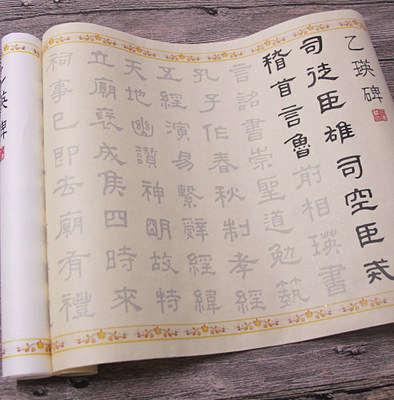 乙瑛碑
司徒臣雄司空臣戒
稽首言魯前相瑛書
言詔書崇聖道勉藝
孔子作春秋制孝經
五經演易繫辭經緯
天地幽讚神明故特
立廟褒成侯四時來
祠事已即去廟有禮